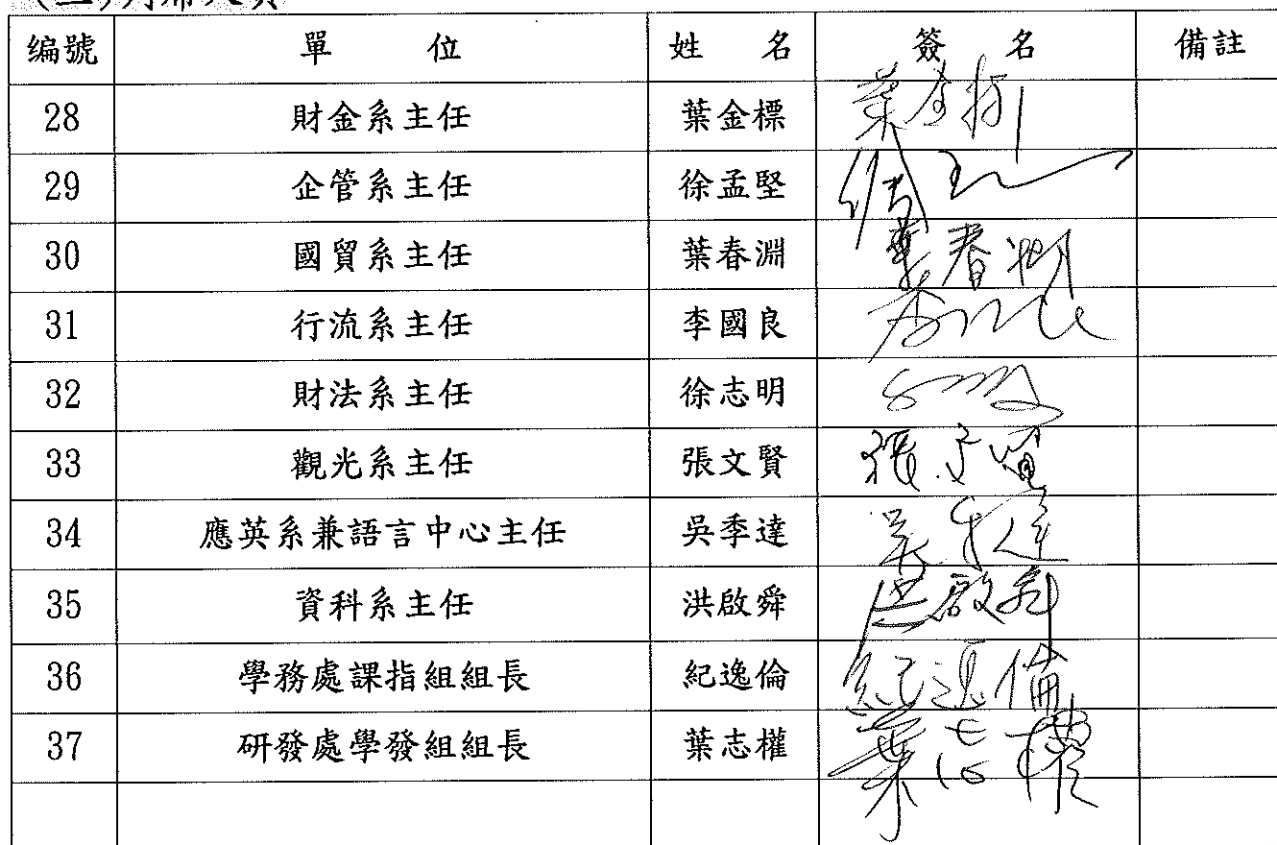 (二)列席人員
編號 單位 姓名 簽名 備註
28 財金系主任 葉金標 葉金標
29 企管系主任 徐孟堅
30 國貿系主任 葉春淵 葉春淵
31 行流系主任 李國良
32 財法系主任 徐志明
33 觀光系主任 張文賢 張文賢
34 應英系兼語言中心主任 吳季達 吳季達
35 資科系主任 洪啟舜 洪啟舜
36 學務處課指組組長 紀逸倫 紀逸倫
37 研發處學發組組長 葉志權 葉志權